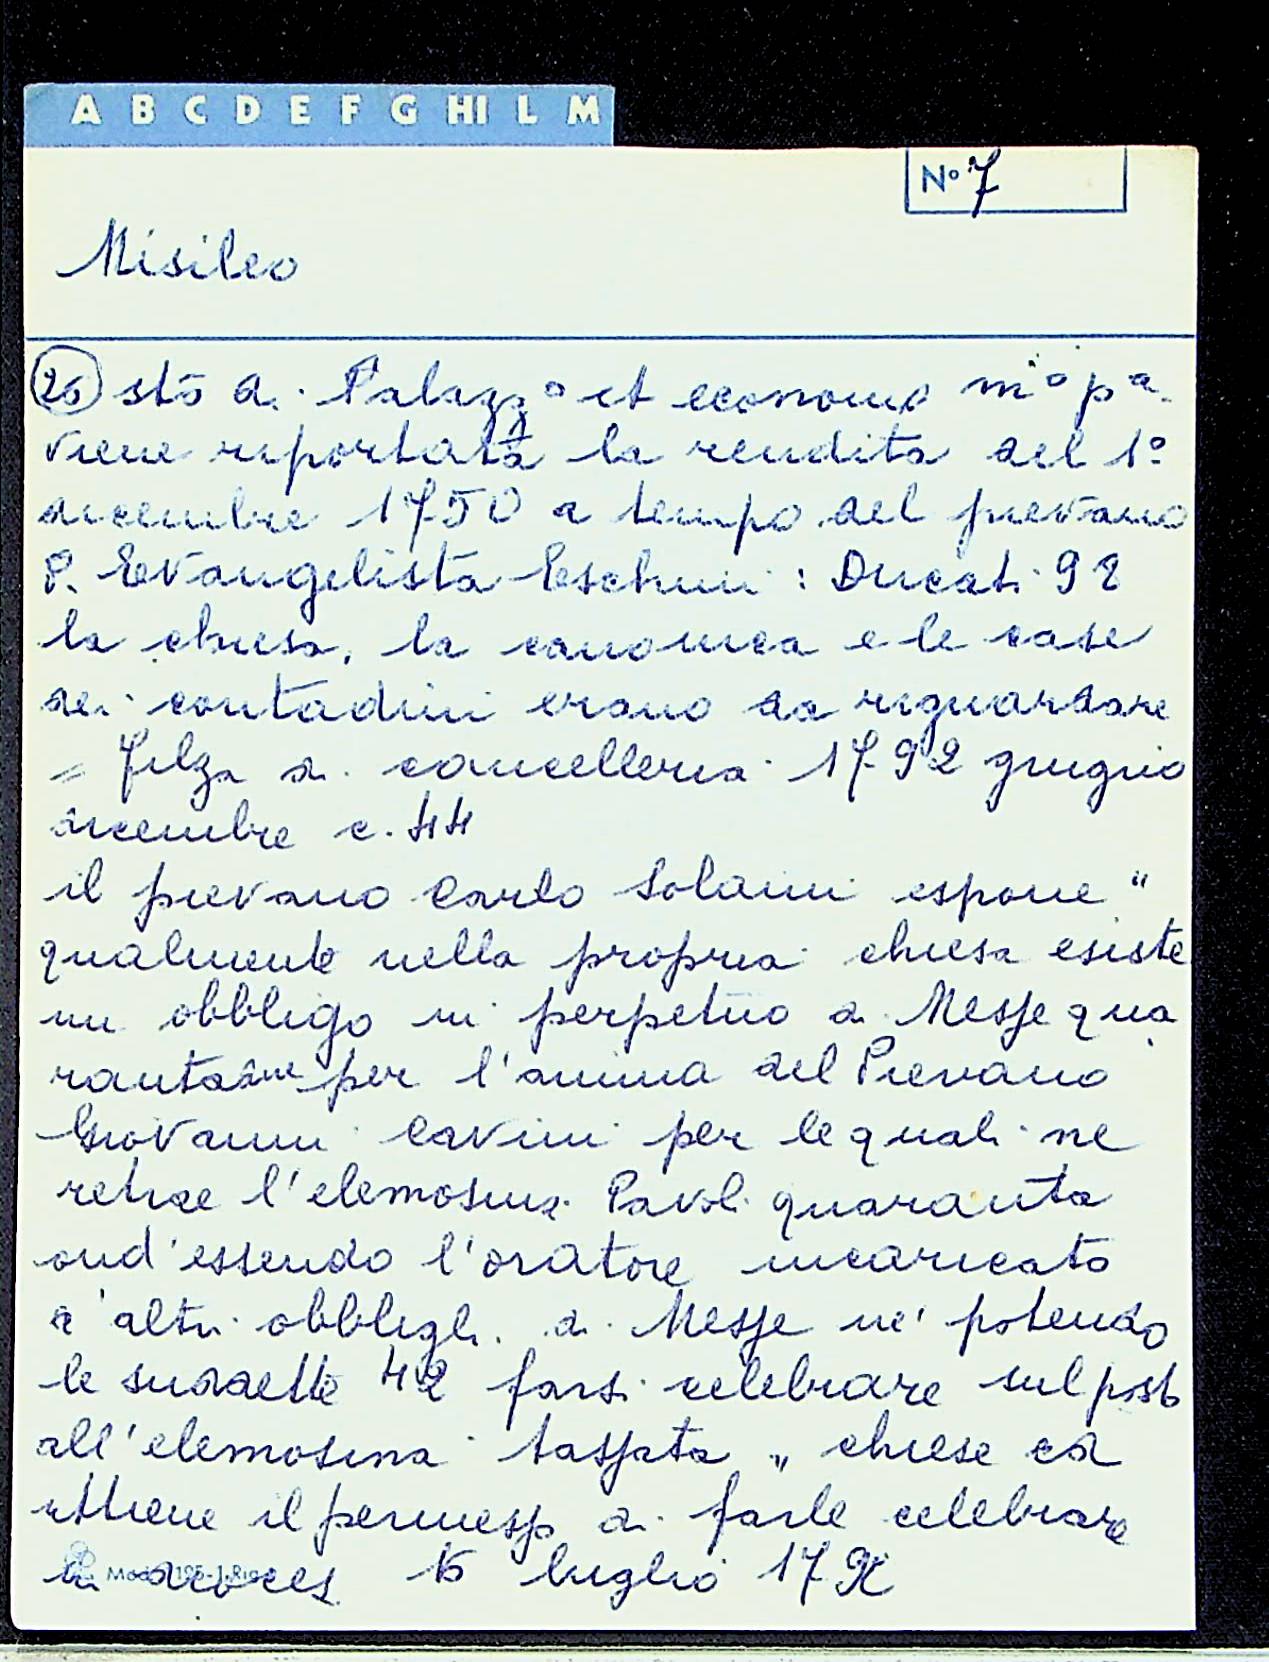 A B C D E F G HI L M
Nº 7
Misileo
26 sto di Palazzº et economo mº pª
viene riportata la rendita del 1º
dicembre 1750 a tempo del pievano
P. Evangelista : Ducati 92
la chiesa, la canonica e le case
dei contadini erano da riguardare
= Filza di cancelleria 1792 giugno
dicembre c. 44
il pievano Carlo Solaini espone "
qualmente nella propria chiesa esiste
un obbligo in perpetuo di Messe qua
rantadue per l'anima del Pievano
Giovanni Cavini per le quali ne
retrae l'elemosina Pavoli quaranta
ond'essendo l'oratore incaricato
d'altri obblighi di Messe ne' potendo
le suddette 42 farsi celebrare sul posto
all'elemosina tassata „ chiese ed
ottiene il permesso di farle celebrare
in 15 luglio 1792